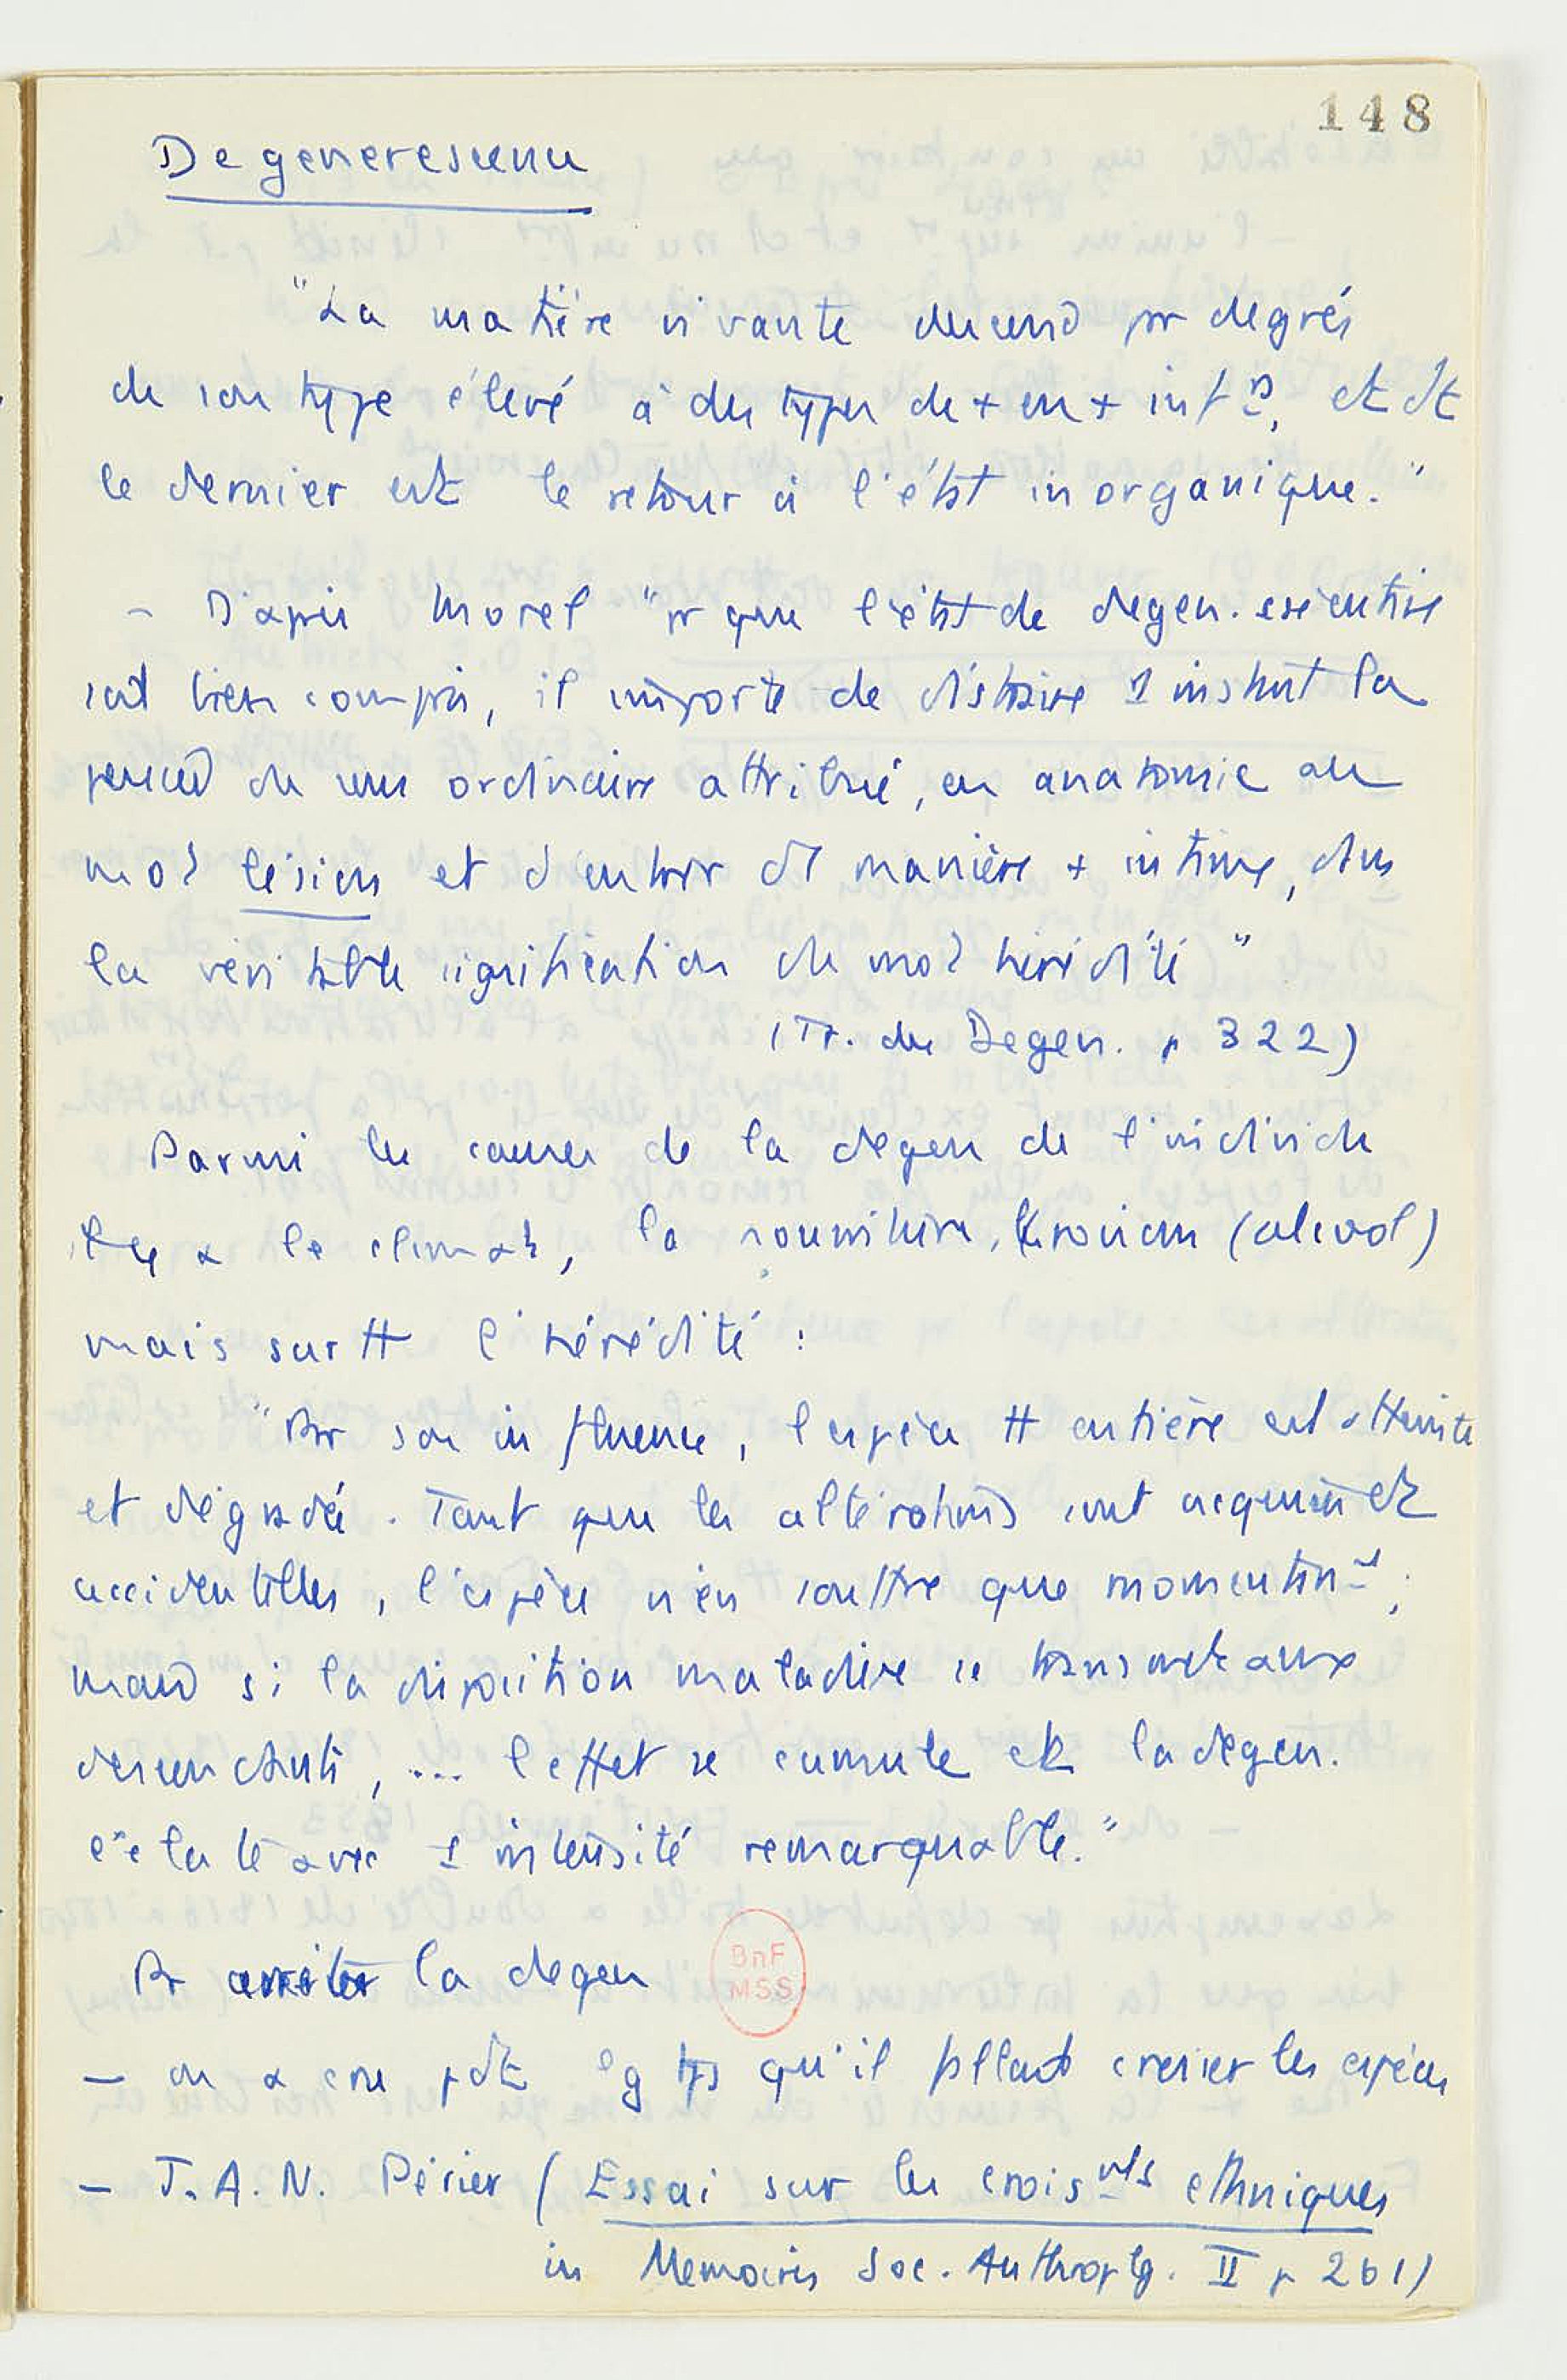 148
Degenerescence
"La matière vivante descend pr degrés
de son type élevé à des types de + en + infrs, et dt
le dernier est le retour à l'état inorganique."
- D'après Morel "pr que l'état de degen. 
soit bien compris, il importe de distraire 1 instant la
pensée du sens ordinaire attribué, en anatomie au
mot lésion et d'entrer d1 manière + intime, dans
la véritable signification du mot hérédité"
(Tr. des Degen. p 322)
Parmi les causes de la degen de l'individu
il y a le climat, la nourriture, (alcool)
mais surtt l'hérédité :
"Par son influence, l'espèce tt entière est atteinte
et dégradée. Tant que les altérations sont acquises et
accidentelles, l'espèce n'en souffre que momentant ;
mais si la disposition maladive se transmet aux
descendants, ... l'effet se cumule et la degen.
éclate avec 1 intensité remarquable."
Pr arrêter la degen
BnF
MSS
- on a cru pdt lg tps qu'il fallait croiser les espèces
- J.A.N. Périer (Essai sur les croismts ethniques
in Memoires Soc. Anthroplg. II p 261)